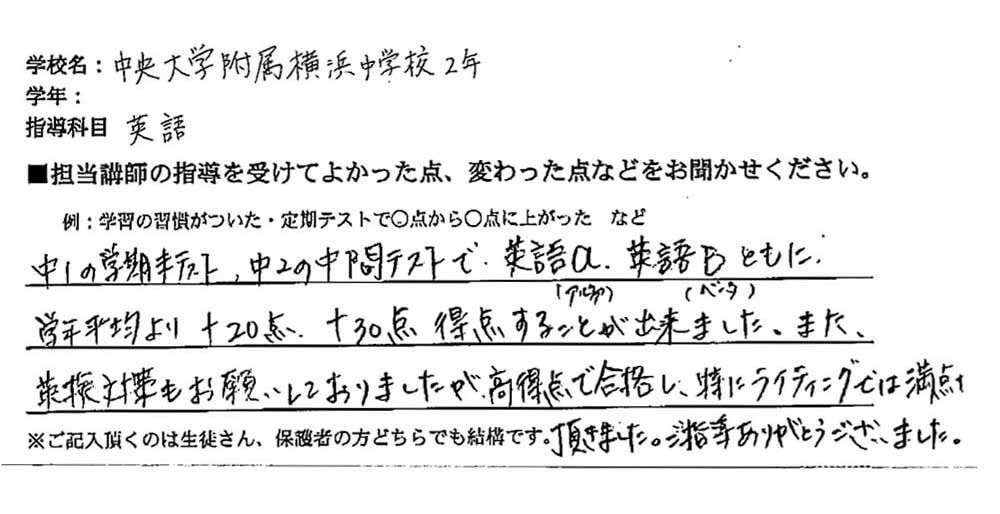 学校名：中央大学附属横浜中学校2年
学年：
指導科目 英語
■担当講師の指導を受けてよかった点、変わった点などをお聞かせください。
例：学習の習慣がついた・定期テストで〇点から〇点に上がった など
中1の学期末テスト、中2の中間テストで、英語α、英語βともに、
(アルファ) (ベータ)
学年平均より+20点、+30点 得点することが出来ました。また、
英検対策もお願いしておりましたが、高得点で合格し、特にライティングでは満点を
※ご記入頂くのは生徒さん、保護者の方どちらでも結構です。頂きました。ご指導ありがとうございました。